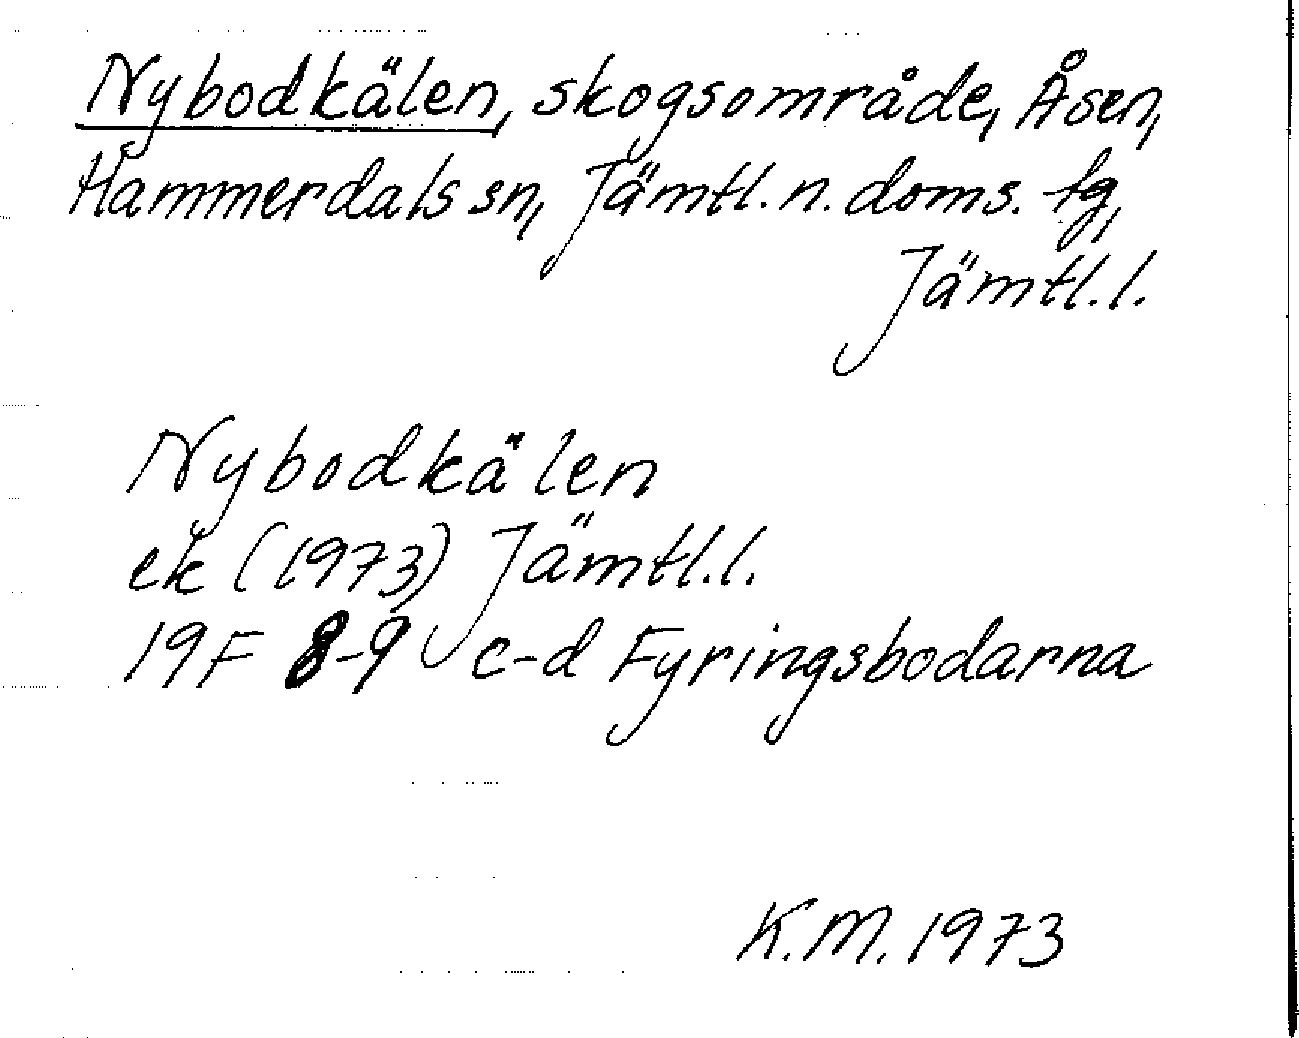 Nybodkälen, skogsområde, Åsen,
Hammerdals sn, Jämtl. n. doms. tg,
Jämtl. l.
Nybodkälen
ek (1973) Jämtl. l.
19F 8-9 c-d Fyringsbodarna
K.M. 1973